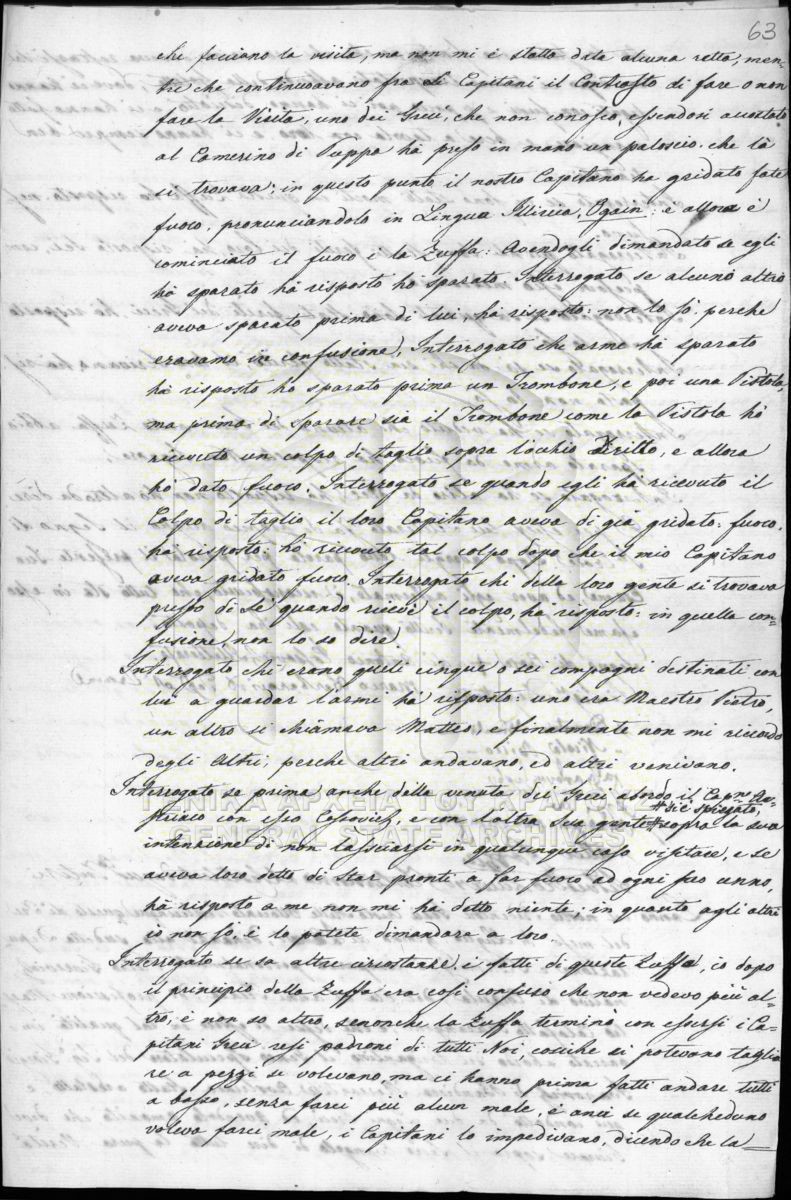 63
che facciano la visita, ma non mi è statta data alcuna retta, men-
tre che continuavano fra li Capitani il Contrasto di fare o non
fare la Visita, uno dei Greci, che non conosco, essendosi accostato
al Camerino di Puppa ha preso in mano un paloscio che là
si trovava; in questo punto il nostro Capitano ha gridato fate
fuoco, pronunciandolo in Lingua Illirica, Ogain: e allora è
cominciato il fuoco e la Zuffa: Avendogli dimandato se egli
ha sparato ha risposto ho sparato. Interrogato se alcuno altro
aveva sparato prima di lui, ha risposto: non lo so perche
eravamo in confusione, Interrogato che arme ha sparato
ha risposto ho sparato prima un Trombone, e poi una Pistola,
ma prima di sparare sia il Trombone come la Pistola ho
ricevuto un colpo di taglio sopra l'occhio diritto, e allora
ho dato fuoco. Interrogato se quando egli ha ricevuto il
Colpo di taglio il loro Capitano aveva di già gridato: fuoco,
ha risposto: ho ricevuto tal colpo dopo che il mio Capitano
aveva gridato fuoco. Interrogato chi della loro gente si trovava
presso di sè quando riceve il colpo, ha risposto: in quella con-
fusione, non lo so dire.
Interrogato chi erano questi cinque o sei compagni destinati con
lui a guardar l'armi ha risposto: uno era Maestro Pietro,
un altro si chiamava Matteo, e finalmente non mi ricordo
degli Altri, perche altri andavano, ed altri venivano.
Interrogato se prima anche della venuta dei Greci abordo il Capno Au-
striaco con esso Cosovich, e con l'altra sua gente # si è spiegato, # sopra la sua
intenzione di non lassciarsi in qualunque caso visitare, e se
aveva loro detto di star pronti a far fuoco ad ogni suo cenno,
ha risposto a me non mi ha detto niente; in quanto agli altri
io non so, e lo potete dimandare a loro.
Interrogato se sa altre circostanze, e fatti di questa Zuffa, io dopo
il principio della Zuffa era così confuso che non vedevo più al-
tro, e non so altro, senonche la Zuffa terminò con essersi i Ca-
pitani Greci resi padroni di tutti Noi, cosiche ci potevano taglia
re a pezzi se volevano, ma ci hanno prima fatti andare tutti
a basso, senza farci più alcun male, e anci se qualcheduno
voleva farci male, i Capitani lo impedivano, dicendo che la
ΓΕΝΙΚΑ ΑΡΧΕΙΑ ΤΟΥ ΚΡΑΤΟΥΣ
GENERAL STATE ARCHIVES